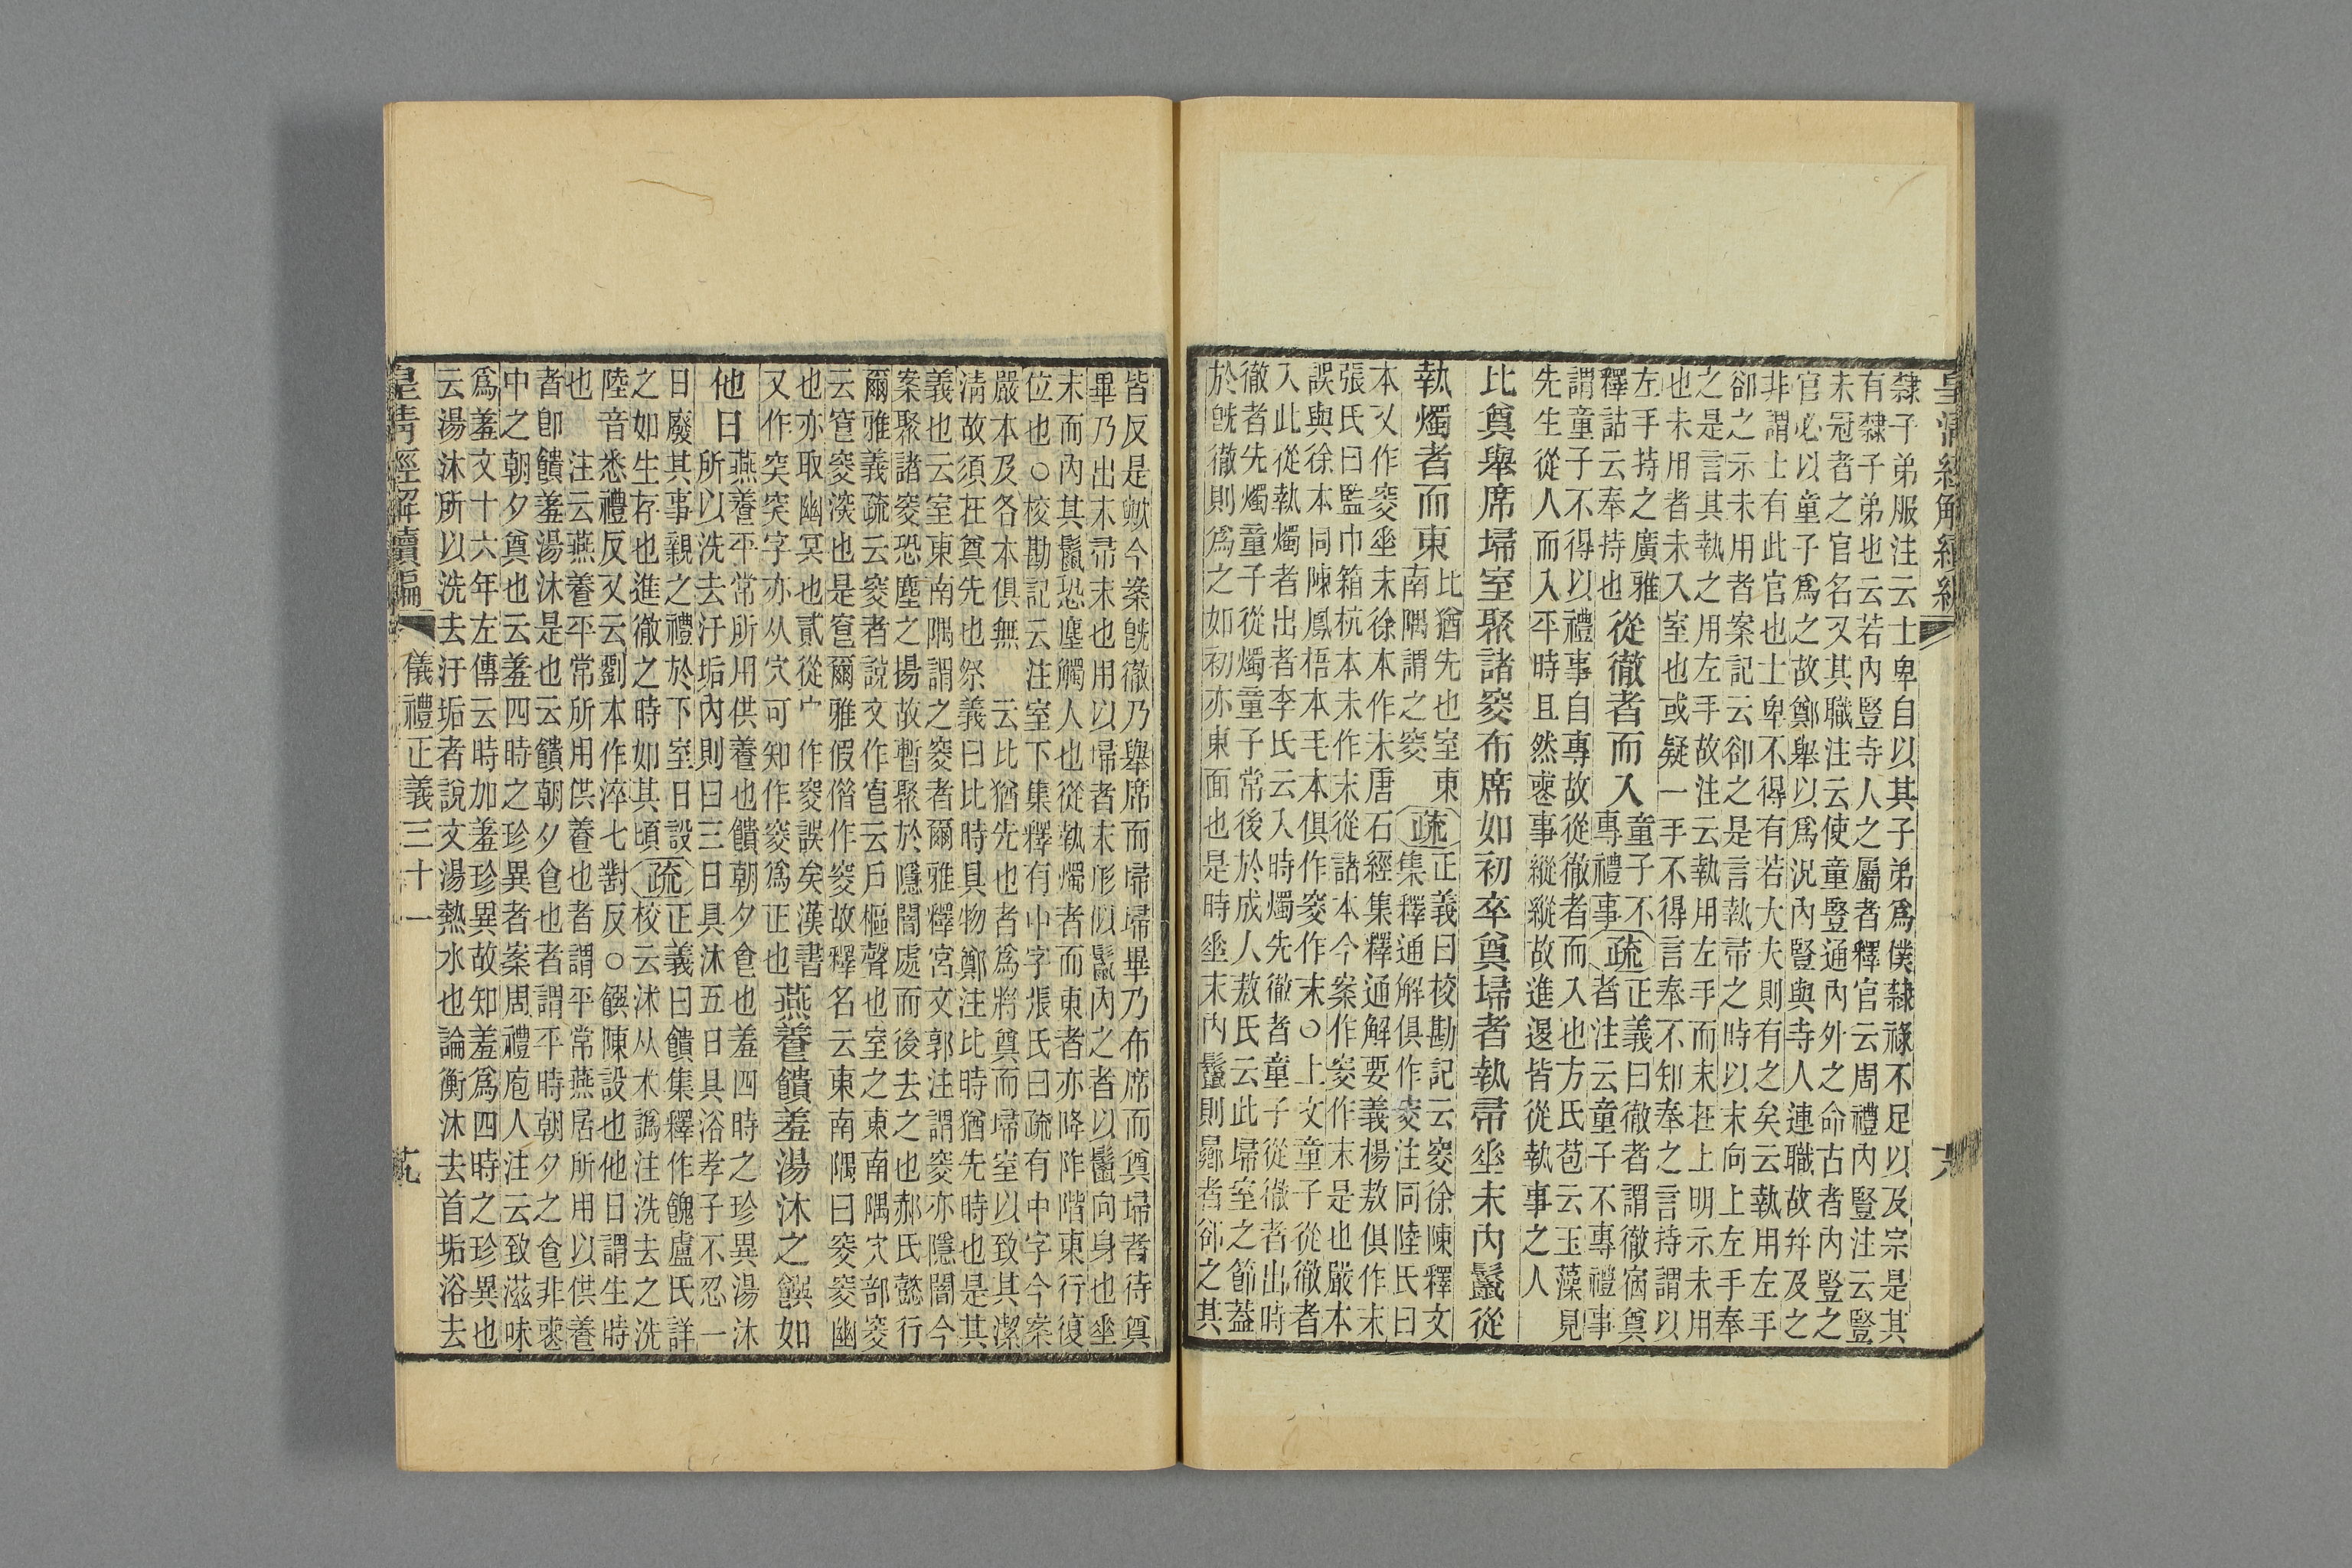 皇清經解續編
隸子弟服注云士卑自以其子弟爲僕隸祿不足以及宗是其
有隸子弟也云若內豎寺人之屬者釋官云周禮內豎注云豎
未冠者之官名又其職注云使童豎通內外之命古者內豎之
官必以童子爲之故鄭舉以爲況內豎與寺人連職故幷及之
非謂士有此官也士卑不得有若大夫則有之矣云執用左手
卻之示未用者案記云卻之是言執帚之時以末向上左手奉
之是言其執之用左手故注云執用左手而末在上明示未用
也未用者未入室也或疑一手不得言奉不知奉之言持謂以
左手持之廣雅
釋詁云奉持也
從徹者而入
童子不
專禮事
疏
正義曰徹者謂徹宿奠
者注云童子不專禮事
謂童子不得以禮事自專故從徹者而入也方氏苞云玉藻見
先生從人而入平時且然喪事縱縱故進退皆從執事之人
比奠舉席埽室聚諸窔布席如初卒奠埽者執帚垂末內鬣從
執燭者而東
比猶先也室東
南隅謂之窔
疏
正義曰校勘記云窔徐陳釋文
集釋通解俱作窔注同陸氏曰
本又作窔垂末徐本作末唐石經集釋通解要義楊敖俱作末
張氏曰監巾箱杭本未作末從諸本今案作窔作末是也嚴本
誤與徐本同陳鳳梧本毛本俱作窔作末○上文童子從徹者
入此從執燭者出者李氏云入時燭先徹者童子從徹者出時
徹者先燭童子從燭童子常後於成人敖氏云此埽室之節葢
於旣徹則爲之如初亦東面也是時垂末內鬣則曏者卻之其
皆反是歟今案旣徹乃舉席而埽埽畢乃布席而奠埽者待奠
畢乃出末帚末也用以埽者末形似鬣內之者以鬣向身也垂
末而內其鬣恐塵觸人也從執燭者而東者亦降阼階東行復
位也○校勘記云注室下集釋有中字張氏曰疏有中字今案
嚴本及各本俱無　云比猶先也者爲將奠而埽室以致其潔
淸故須在奠先也祭義曰比時具物鄭注比時猶先時也是其
義也云室東南隅謂之窔者爾雅釋宮文郭注謂窔亦隱闇今
案聚諸窔恐塵之揚故暫聚於隱闇處而後去之也郝氏懿行
爾雅義疏云窔者說文作窅云戶樞聲也室之東南隅穴部窔
云窅窔深也是窅爾雅假借作窔故釋名云東南隅曰窔窔幽
也亦取幽冥也貳從宀　作窔誤矣漢書
又作突突字亦从穴可知作窔爲正也
燕養饋羞湯沐之饌如
他日
燕養平常所用供養也饋朝夕食也羞四時之珍異湯沐
所以洗去汙垢內則曰三日具沐五日具浴孝子不忍一
日廢其事親之禮於下室日設
之如生存也進徹之時如其頃
疏
正義曰饋集釋作餽盧氏詳
校云沭从术譌注洗去之洗
陸音悉禮反又云劉本作淬七對反○饌陳設也他日謂生時
也　注云燕養平常所用供養也者謂平常燕居所用以供養
者卽饋羞湯沐是也云饋朝夕食也者謂平時朝夕之食非喪
中之朝夕奠也云羞四時之珍異者案周禮庖人注云致滋味
爲羞文十六年左傳云時加羞珍異故知羞爲四時之珍異也
云湯沐所以洗去汙垢者說文湯熱水也論衡沐去首垢浴去
皇清經解續編　儀禮正義三十一